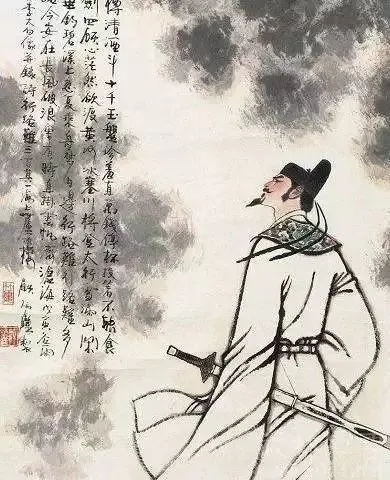 樽清酒斗十千玉盤珍羞直萬錢停杯投箸不能食
劍四顧心茫然欲渡黃河冰塞川將登太行雪滿山閒
垂釣碧溪上忽復乘舟夢日邊行路難行路難多
路今安在長風破浪會有時直掛雲帆濟滄海
李太白像并錄詩行路難三首其一
顧炳鑫製